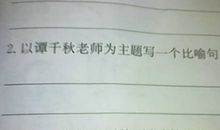 2.以谭千秋老师为主题写一个比喻句